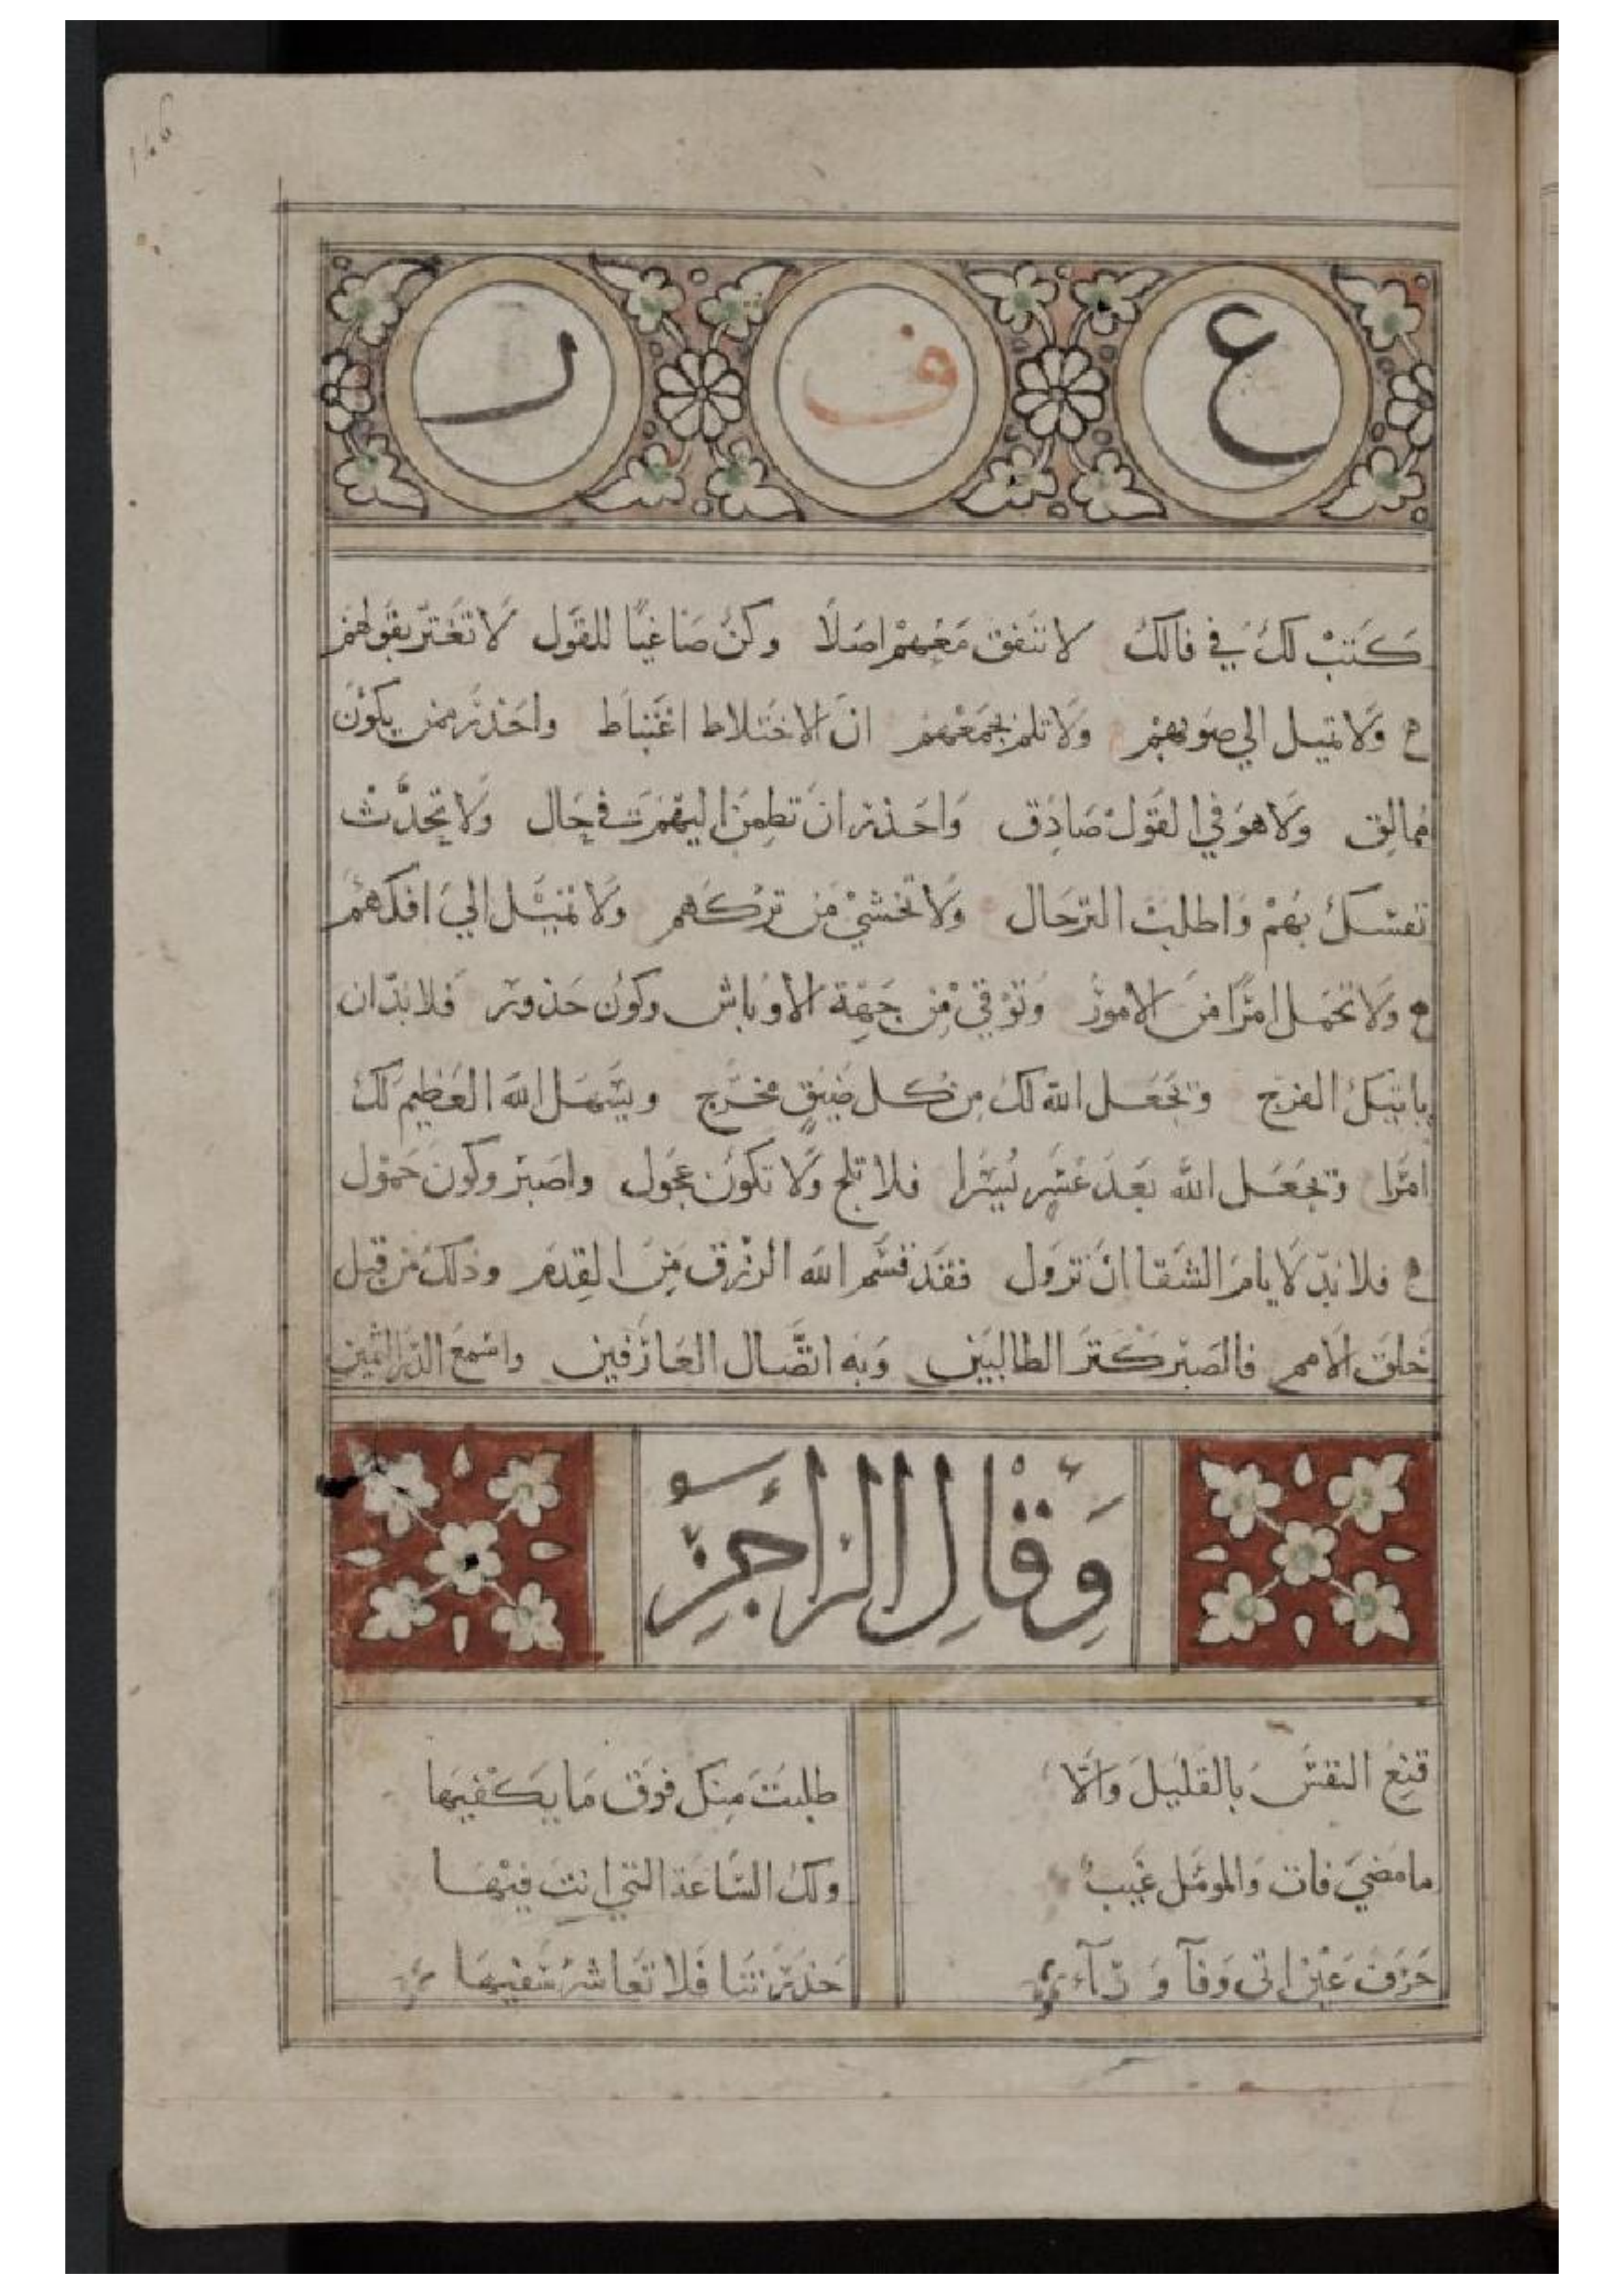 ع ف ر
كتب لك في فالك لا تتفق معهم اصلا وكن صاغيا للقول لا تغتر بقولهم
ولا تميل الي صوبهم ولا تلم بجمعهم ان الاختلاط اغتباط واحذر ممن يكون
ممالق ولا هو في القول صادق واحذر ان تطمن اليهم في حال ولا تحدث
نفسك بهم واطلب الترحال ولا تخشي من تركهم ولا تميل الي افكهم
ولا تحمل امرا من الامور وتوقي من جهة الاوباش وكون حذور فلا بد ان
ياتيك الفرج ويجعل الله لك من كل ضيق مخرج ويسهل الله العظيم لك
امرا ويجعل الله بعد عسر يسرا فلا تلج ولا تكون عجول واصبر وكون حمول
فلا بد لايام الشقا ان تزول فقد قسم الله الرزق من القدم وذلك من قبل
خلق الامم فالصبر كنز الطالبين وبه اتصال العارفين واسمع الدر الثمين
وقال الراجز
قنع النفس بالقليل والا طلبت منك فوق ما يكفيها
ما مضي فات والمومل غيب ولك الساعة التي انت فيها
حرف عين اتى وفآ ورآء حذرتنا فلا تعاشر سفيها